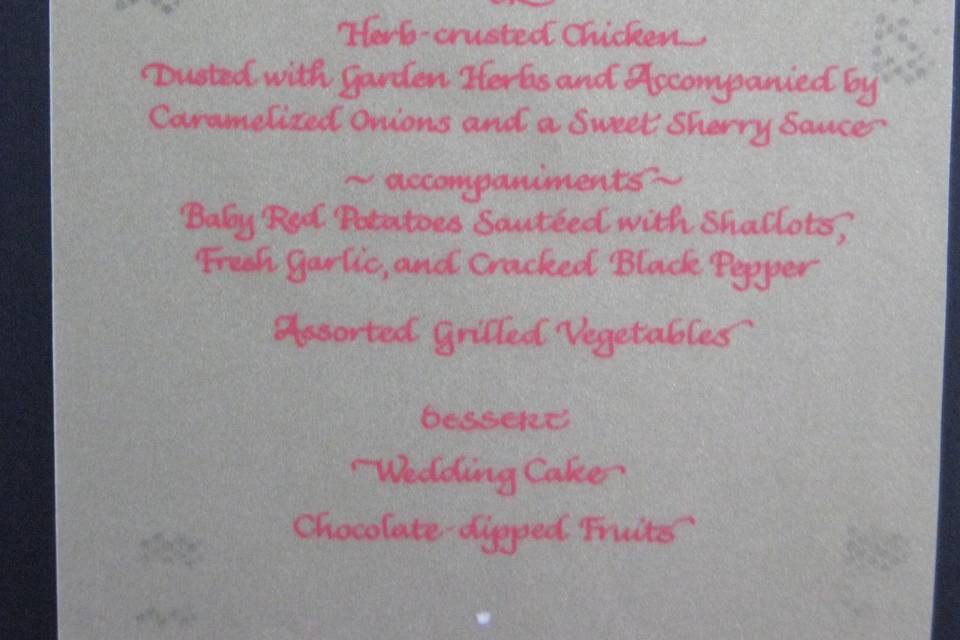 Herb-crusted Chicken
Dusted with Garden Herbs and Accompanied by
Caramelized Onions and a Sweet Sherry Sauce
~ accompaniments ~
Baby Red Potatoes Sautéed with Shallots,
Fresh Garlic, and Cracked Black Pepper
Assorted Grilled Vegetables
dessert
Wedding Cake
Chocolate-dipped Fruits